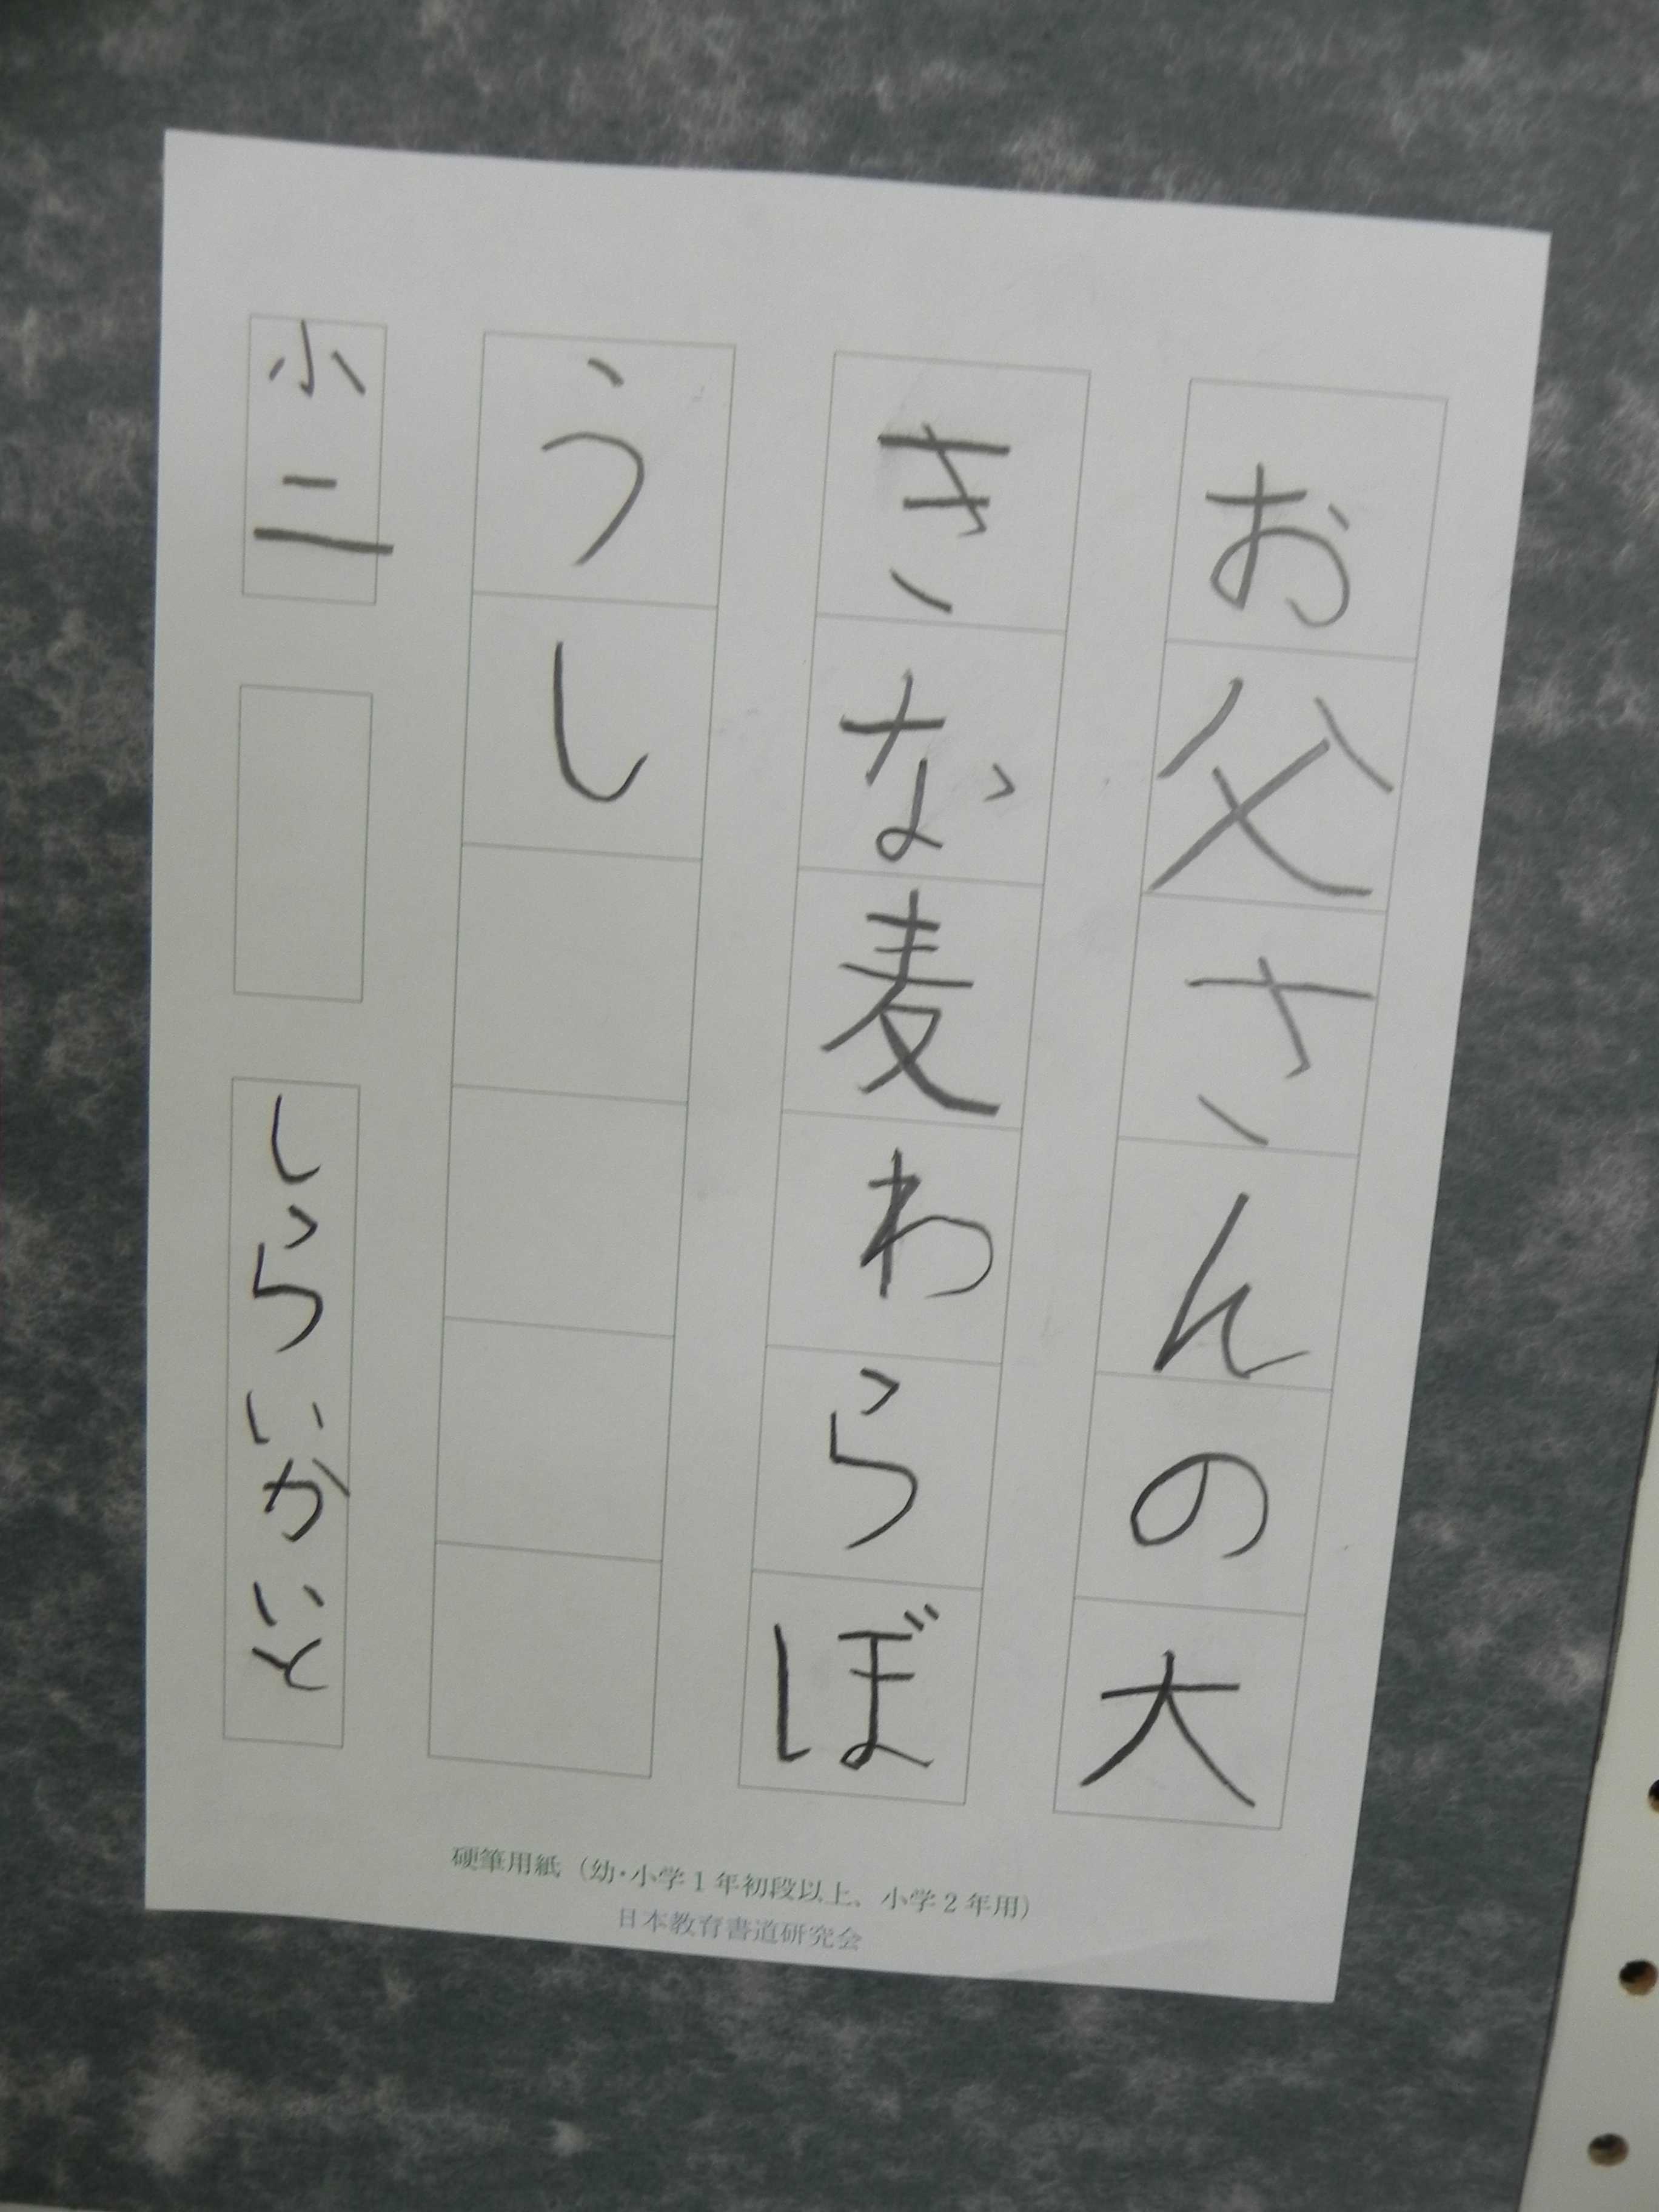 お父さんの大
きな麦わらぼ
うし
小二
しらいかいと
硬筆用紙（幼・小学1年初段以上、小学2年用）
日本教育書道研究会